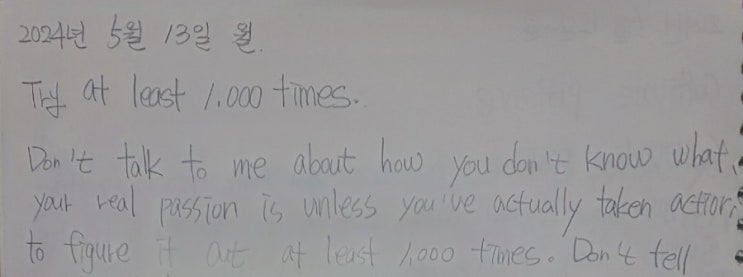 2024년 5월 13일 월.
Try at least 1,000 times.
Don't talk to me about how you don't know what
your real passion is unless you've actually taken action
to figure it out at least 1,000 times. Don't tell